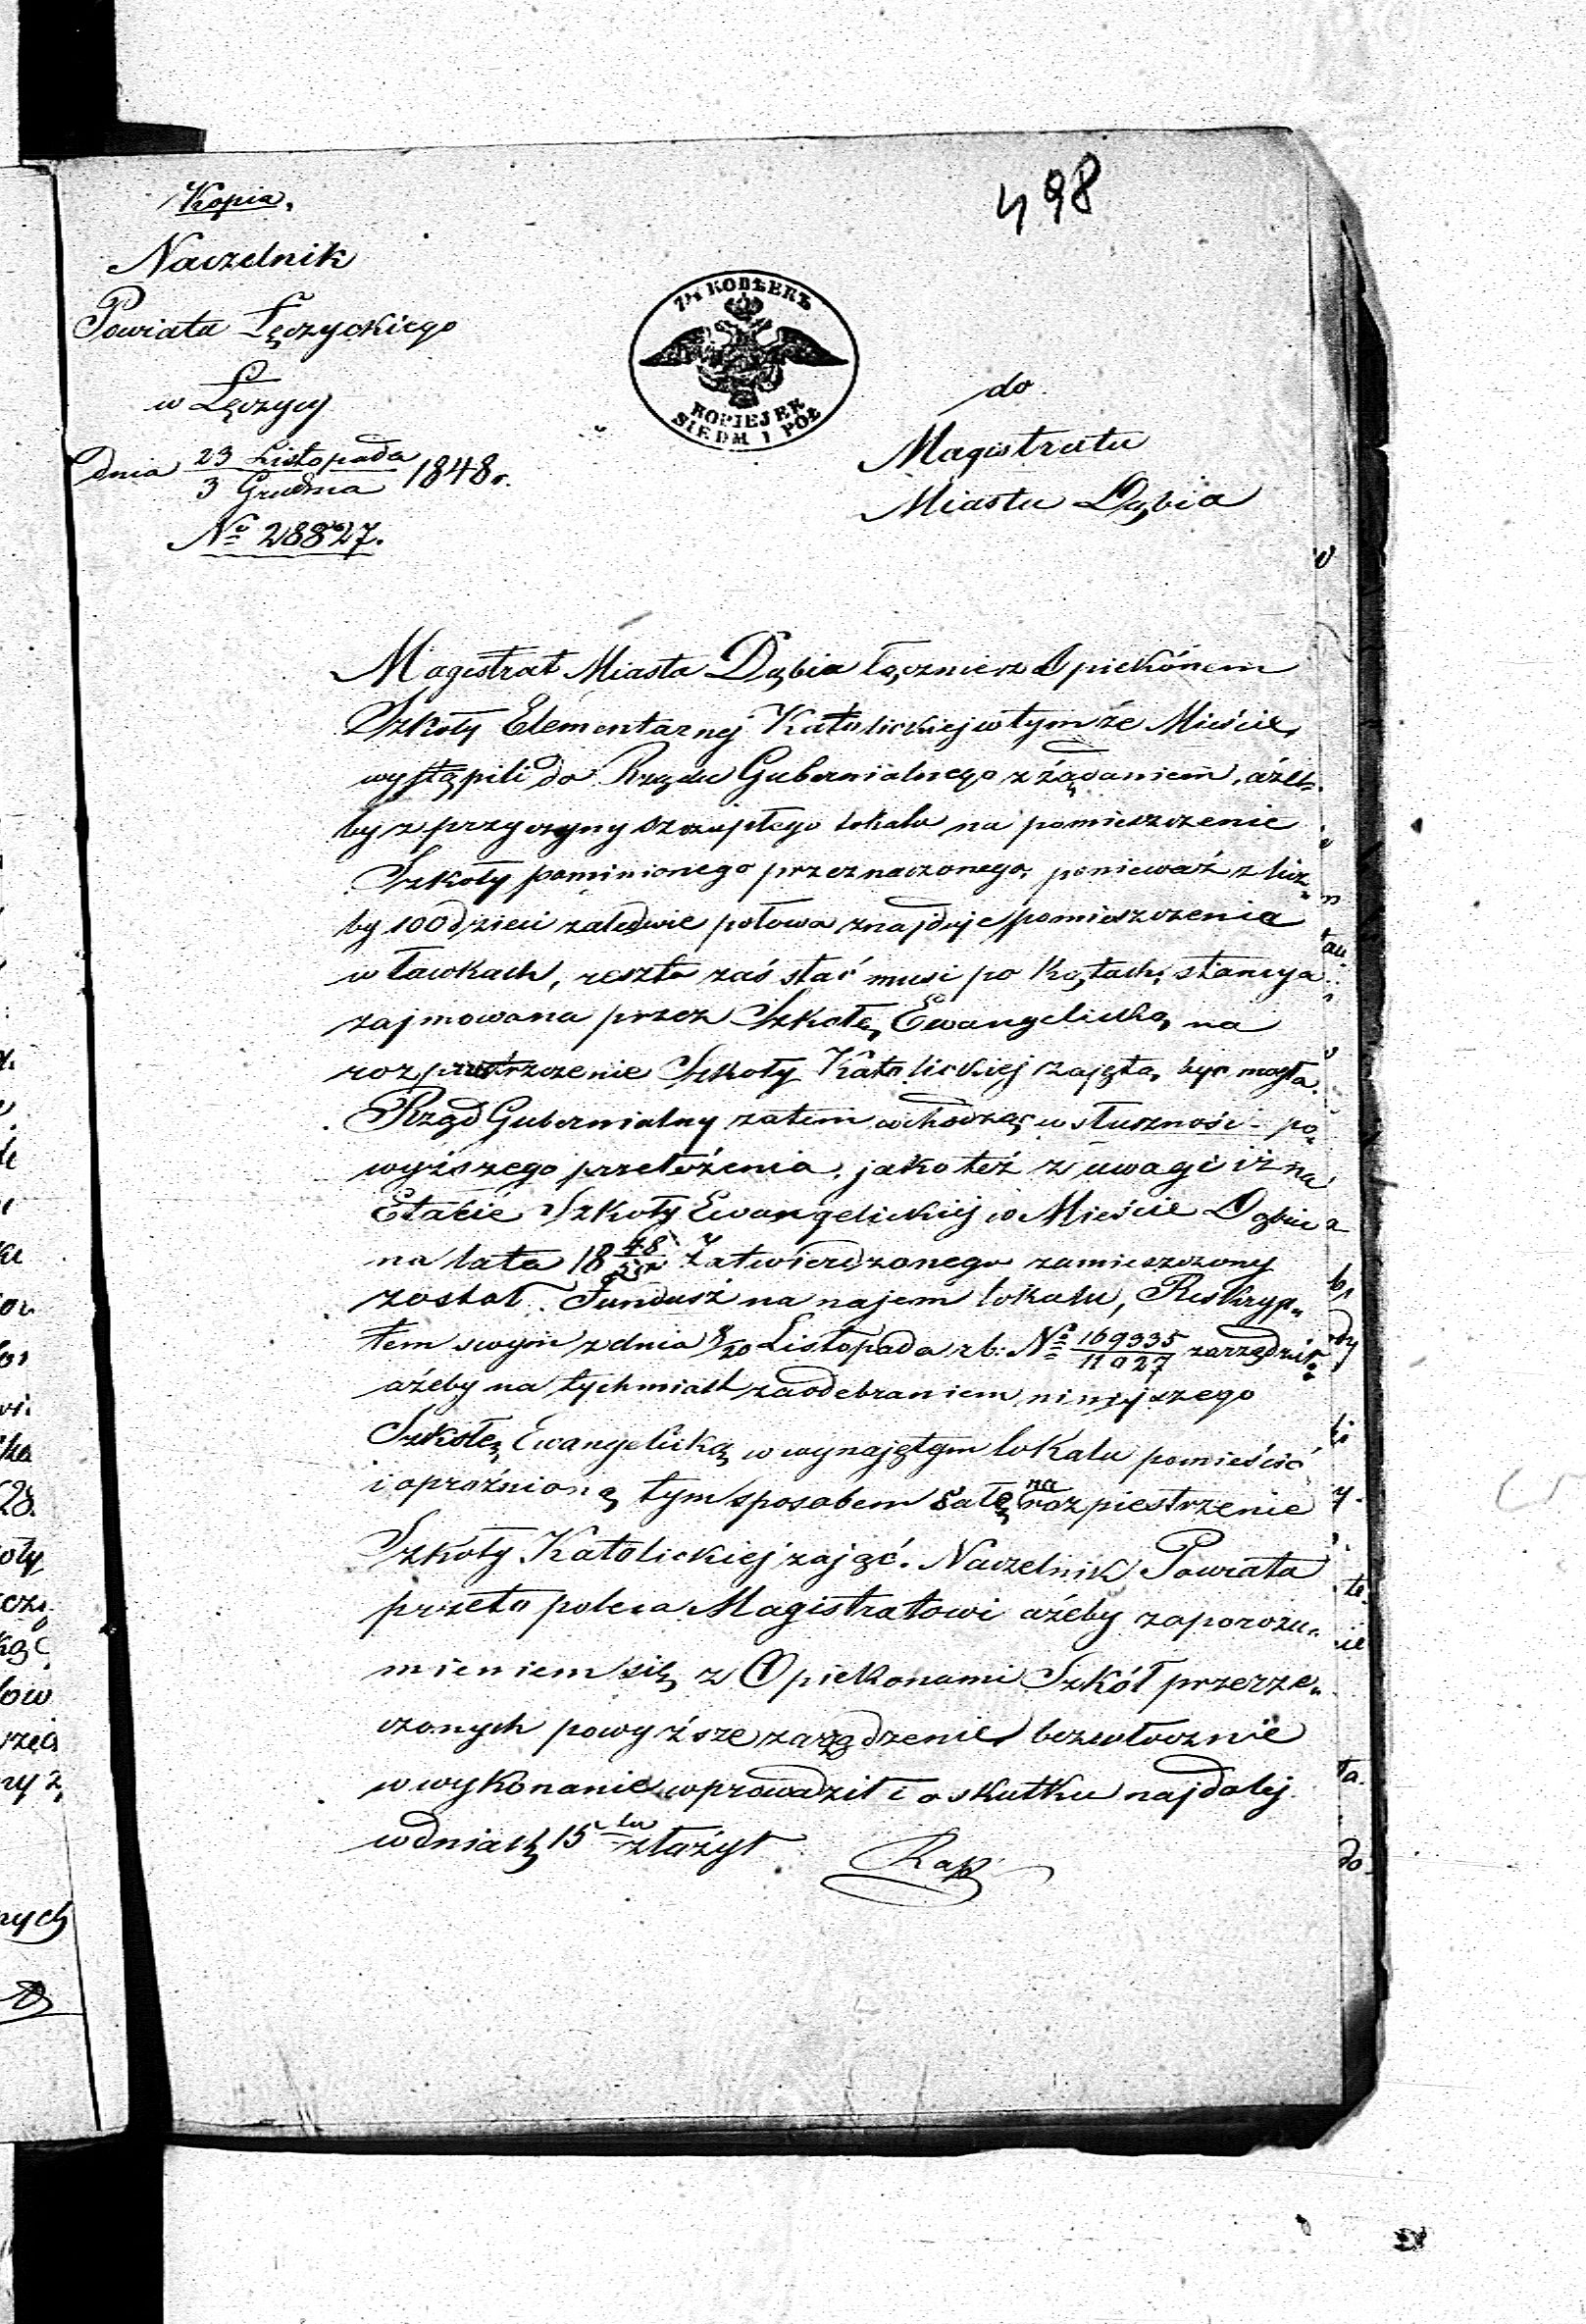 Kopia.
498
Naczelnik
Powiatu Łęczyckiego
w Łęczycy
dnia 23 Listopada / 3 Grudnia 1848 r.
Nº 28827.
7½ КОПѢЕКЪ
KOPIEJEK
SIEDM I PÓŁ
do
Magistratu
Miasta Dąbia
Magistrat Miasta Dąbia łącznie z Opiekónem
Szkoły Elementarnej Katolickiej w tym że Mieście,
wystąpili do Rządu Gubernialnego z żądaniem, ażeby
by z przyczyny szczupłego lokalu na pomieszczenie
Szkoły pominionego przeznaczonego, ponieważ z licz„
by 100 dzieci zaledwie połowa znajduje pomieszczenia
w ławkach, reszta zaś stać musi po kątach, stancya
zajmowana przez Szkołę Ewangelicką na
rozprzestrzenie Szkoły Katolickiej zajęta być mogła.
Rząd Gubernialny zatem wchodząc w słuszność po„
wyższego przełożenia, jako też z uwagi iż na
Etacie Szkoły Ewangelickiej w Mieście Dąbiu
na lata 18 48/ Zatwierdzonego zamieszczony
został Fundusz na najem lokalu, Reskryp„
tem swym z dnia 8/20 Listopada rb: Nº 169335/11027 zarządził
ażeby na tychmiast za odebraniem niniejszego
Szkołę Ewangelicką w wynajętym lokalu pomieścić
i opróżnioną tym sposobem salę na rozpiestrzenie
Szkoły Katolickiej zająć. Naczelnik Powiatu
przeto poleca Magistratowi ażeby zaporozu„
mieniem się z Opiekonami Szkół przerze„
czonych powyższe zarządzenie bezwłocznie
w wykonanie wprowadził i o skutku najdalej
w dniach 15 tu złożył
Rap